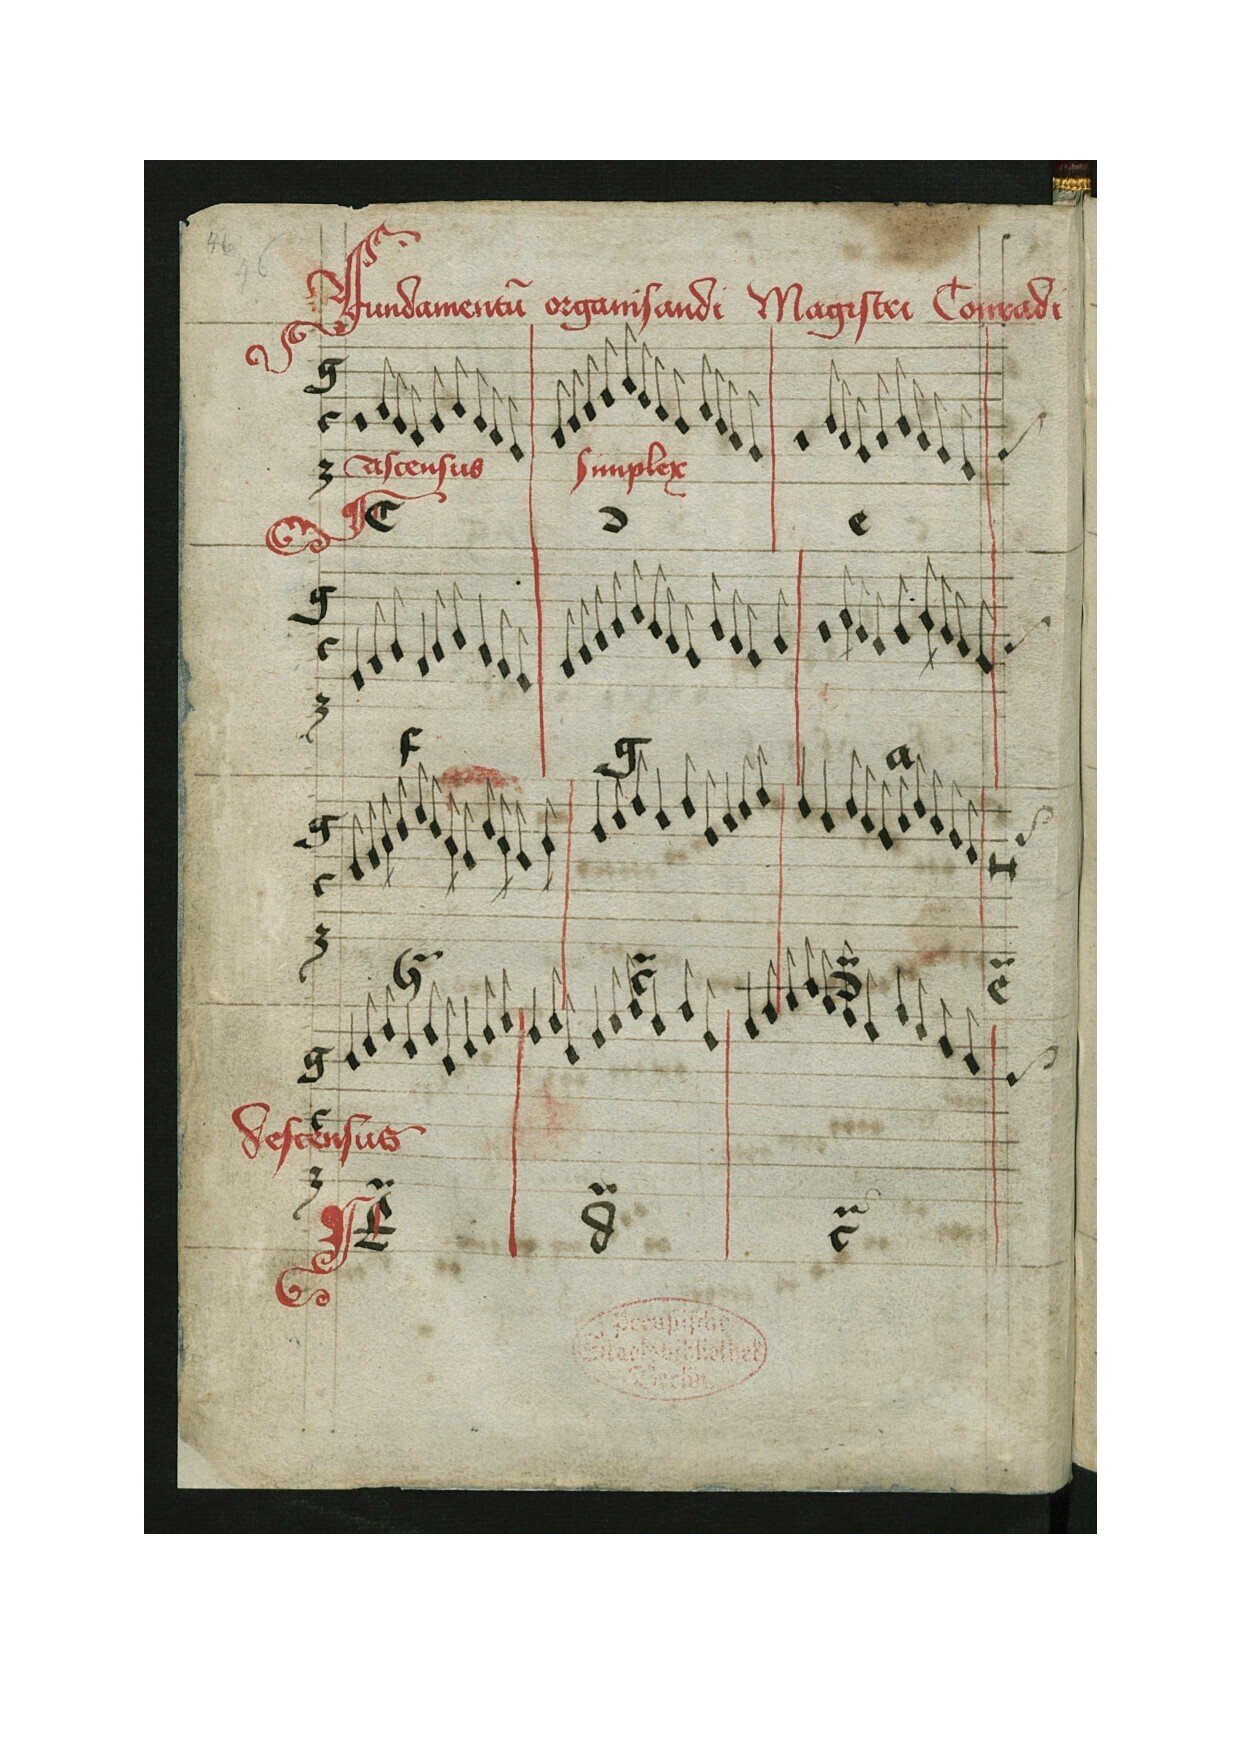 46
46
Fundamentũ organisandi Magistri Conradi
g
c
Ascensus simplex
C D e
g
c
f g a
g
c
h c̈ d̈ ë
g
c
descensus
d̈ c̈
Preußische
Staatsbibliothek
Berlin